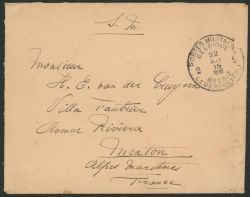 S. M.
POSTES MILITAIRES
BELGIQUE
22
15
BELGIË
Monsieur
H. E. van der
Villa
Avenue Riviera
Menton
Alpes Maritimes
France